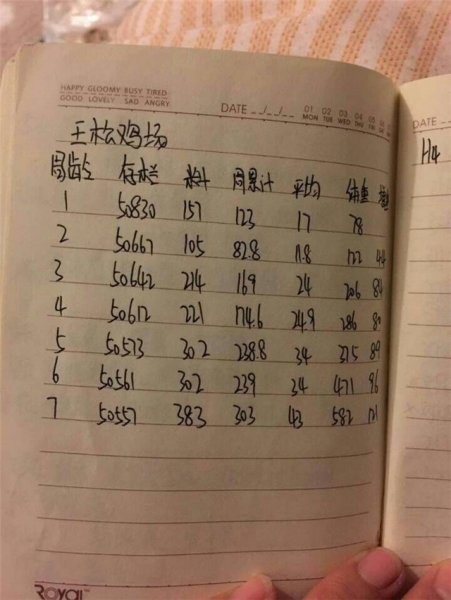 HAPPY GLOOMY BUSY TIRED
GOOD LOVELY SAD ANGRY
DATE _/_/_ 01 02 03 04 05
MON TUE WED THU FRI
王松鸡场
周龄 存栏 料 周累计 平均 体重
1 50830 157 123 17 78
2 50667 105 82.8 11.8 122 44
3 50642 214 169 24 206 84
4 50612 221 174.6 24.9 286 80
5 50573 302 238.8 34 375 89
6 50561 302 239 34 471 96
7 50557 383 303 43 582
ROYAL
DATE
H4